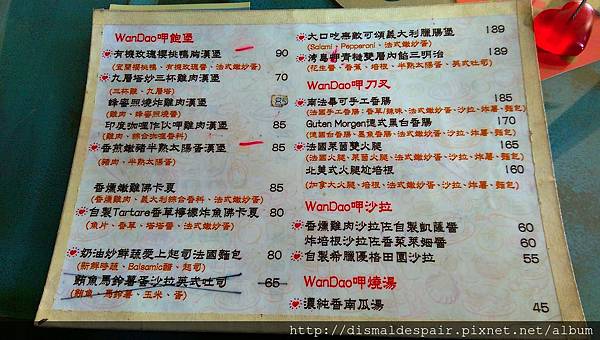 WanDao呷飽堡
有機玫瑰櫻桃鴨胸漢堡 90
(宜蘭櫻桃鴨、有機玫瑰醬、法式嫩炒蛋)
九層塔炒三杯雞肉漢堡 70
(三杯雞、九層塔)
蜂蜜照燒炸雞肉漢堡 85
(雞肉、蜂蜜醬)
印度咖哩作伙呷雞肉漢堡 85
(雞肉、綜合咖哩香料)
香煎嫩豬半熟太陽蛋漢堡 85
(豬肉、半熟太陽蛋)
香燻嫩雞佛卡夏 85
(雞肉、義大利綜合香料、法式嫩炒蛋)
自製Tartare香草檸檬炸魚佛卡夏 80
(魚片、香草、塔塔醬、法式嫩炒蛋)
奶油炒鮮蔬愛上起司法國麵包 80
(新鮮時蔬、Balsamic醋、起司)
鮪魚馬鈴薯蛋沙拉英式吐司 65
(鮪魚、馬鈴薯、玉米、蛋)
大口吃無敵可頌義大利臘腸堡 139
(Salami、Pepperoni、法式嫩炒蛋)
灣粵呷青樾雙層內餡三明治 139
(花生醬、香蕉、培根、半熟太陽蛋、英式吐司)
WanDao呷刀叉
南法尋可手工香腸 185
(法國手工香腸:香草/辣味、法式嫩炒蛋、沙拉、炸薯、麵包)
Guten Morgen德式曼台香腸 170
(德國香腸、墨魚香腸、法式嫩炒蛋、沙拉、炸薯、麵包)
法國菜茵雙火腿 165
(法國火腿、萊茵火腿、法式嫩炒蛋、沙拉、炸薯、麵包)
北美式火腿ㄓ培根 160
(加拿大火腿、培根、法式嫩炒蛋、沙拉、炸薯、麵包)
WanDao呷沙拉
香燻雞肉沙拉佐自製凱薩醬 60
炸培根沙拉佐香菜萊姆醬 60
自製希臘優格田園沙拉 55
WanDao呷燒湯
濃純香南瓜湯 45
http://dismaldespair.pixnet.net/album